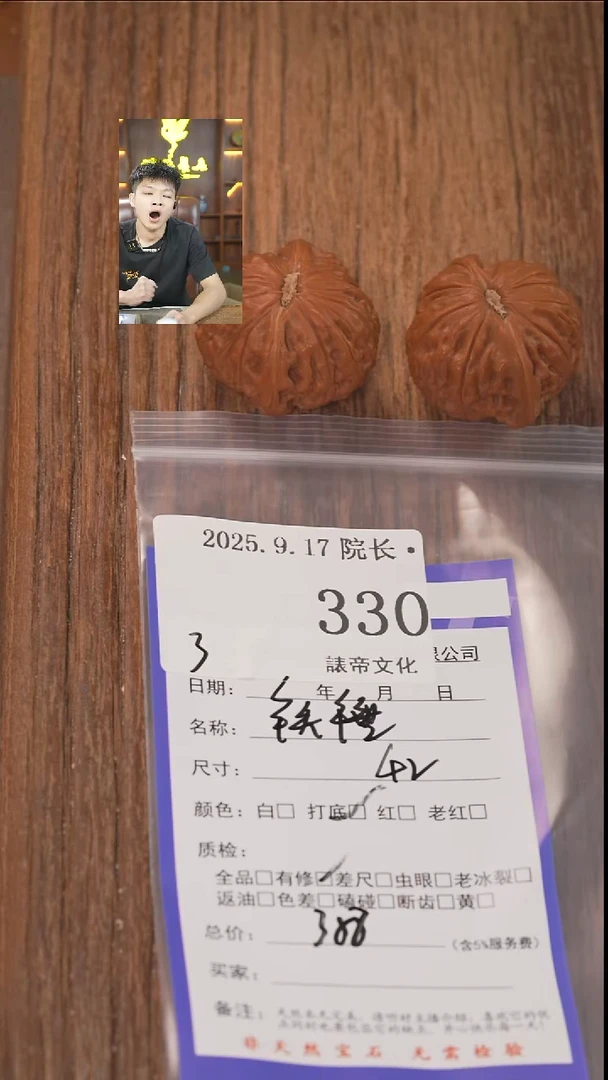 2025.9.17 院长·
330
3
諘帝文化
限公司
日期: 年 月 日
名称: 铁锤
尺寸: 42
颜色: 白□ 打底☑ 红□ 老红□
质检:
全品□有修☑差尺□虫眼□老冰裂□
返油□色差□磕碰□断齿□黄□
总价: 388 (含5%服务费)
买家:
备注:
非天然宝石 无需检验